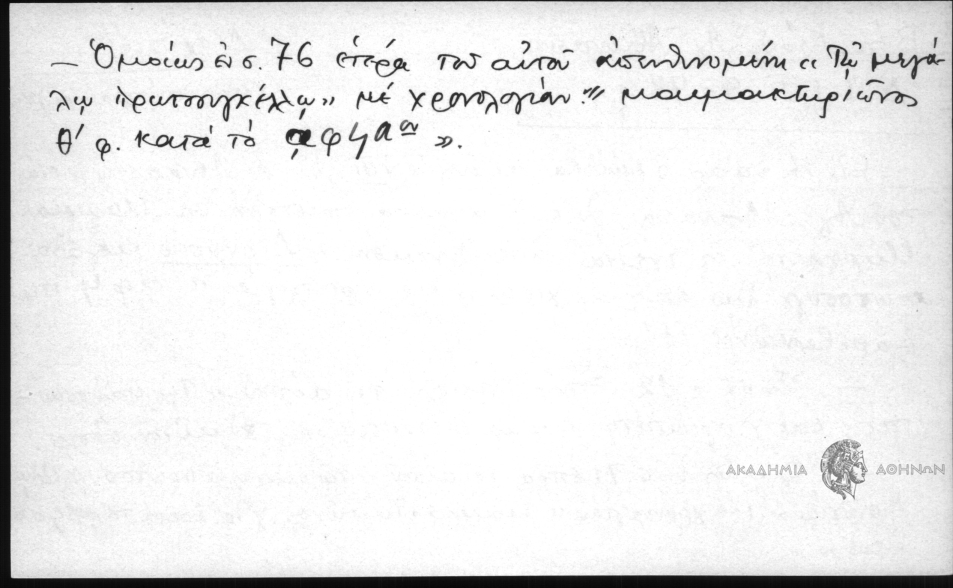 — Ὁμοίως ἐν σ. 76 ἑτέρα τοῦ αὐτοῦ ἀπευθυνομένη «Τῷ μεγά-
λῳ πρωτοσυγκέλλῳ» μέ χρονολογίαν: «μαιμακτηριῶνος
θ′ φ. κατά τό ͵αφϟα ον».
ΑΚΑΔΗΜΙΑ ΑΘΗΝΩΝ